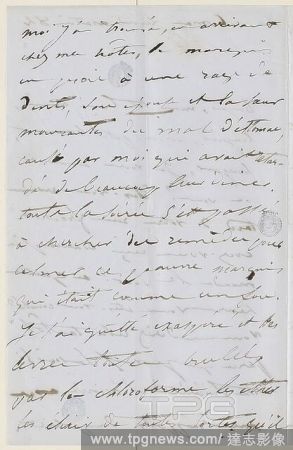 moi j'ai trouvé, en arrivant
chez mes hôtes, le marquis
en proie à une rage de
dents, son épouse et la sœur
mourantes de mal d'estomac,
causé par moi qui avait
de beaucoup
toute la soirée s'est passée
à chercher des remèdes pour
calmer ce pauvre marquis
qui était comme un fou.
Je l'ai quitté exaspéré et
toutes
par le chloroforme,
les de toutes sortes qu'il
TPG
www.tpgnews.com/達志影像